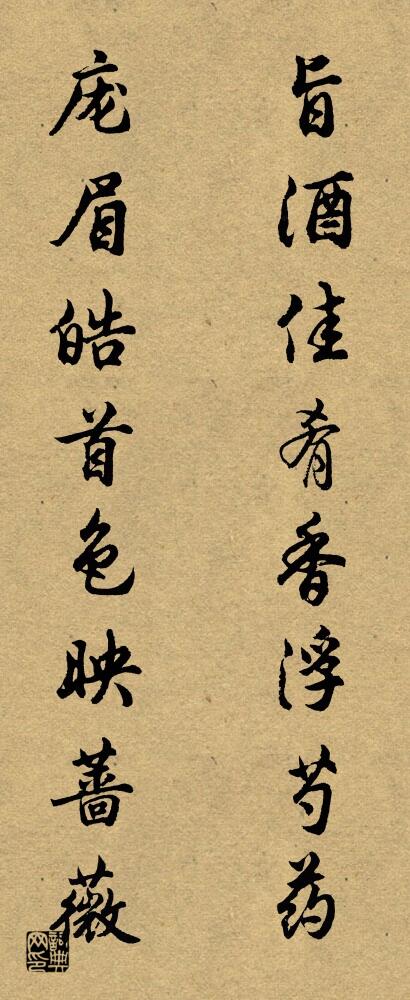 旨酒佳肴香浮芍药
庞眉皓首色映蔷薇